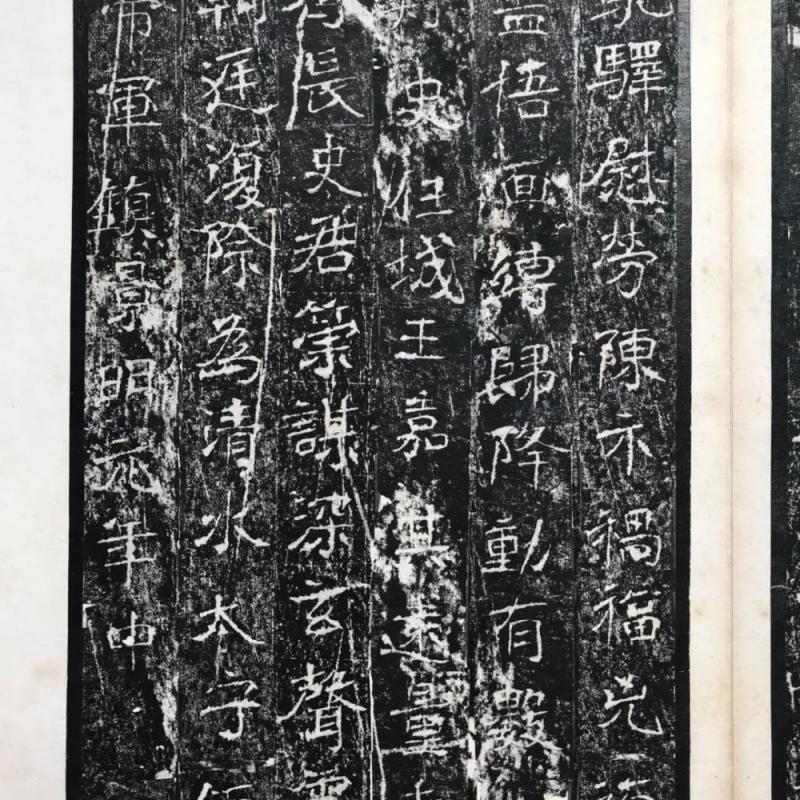 驛慰勞陳示禍福兇
益悟面縛歸降動有數
史任城王嘉其遠量
長史君策謀深玄聲
朝廷復除為清水太守
帶軍鎮景明元年中